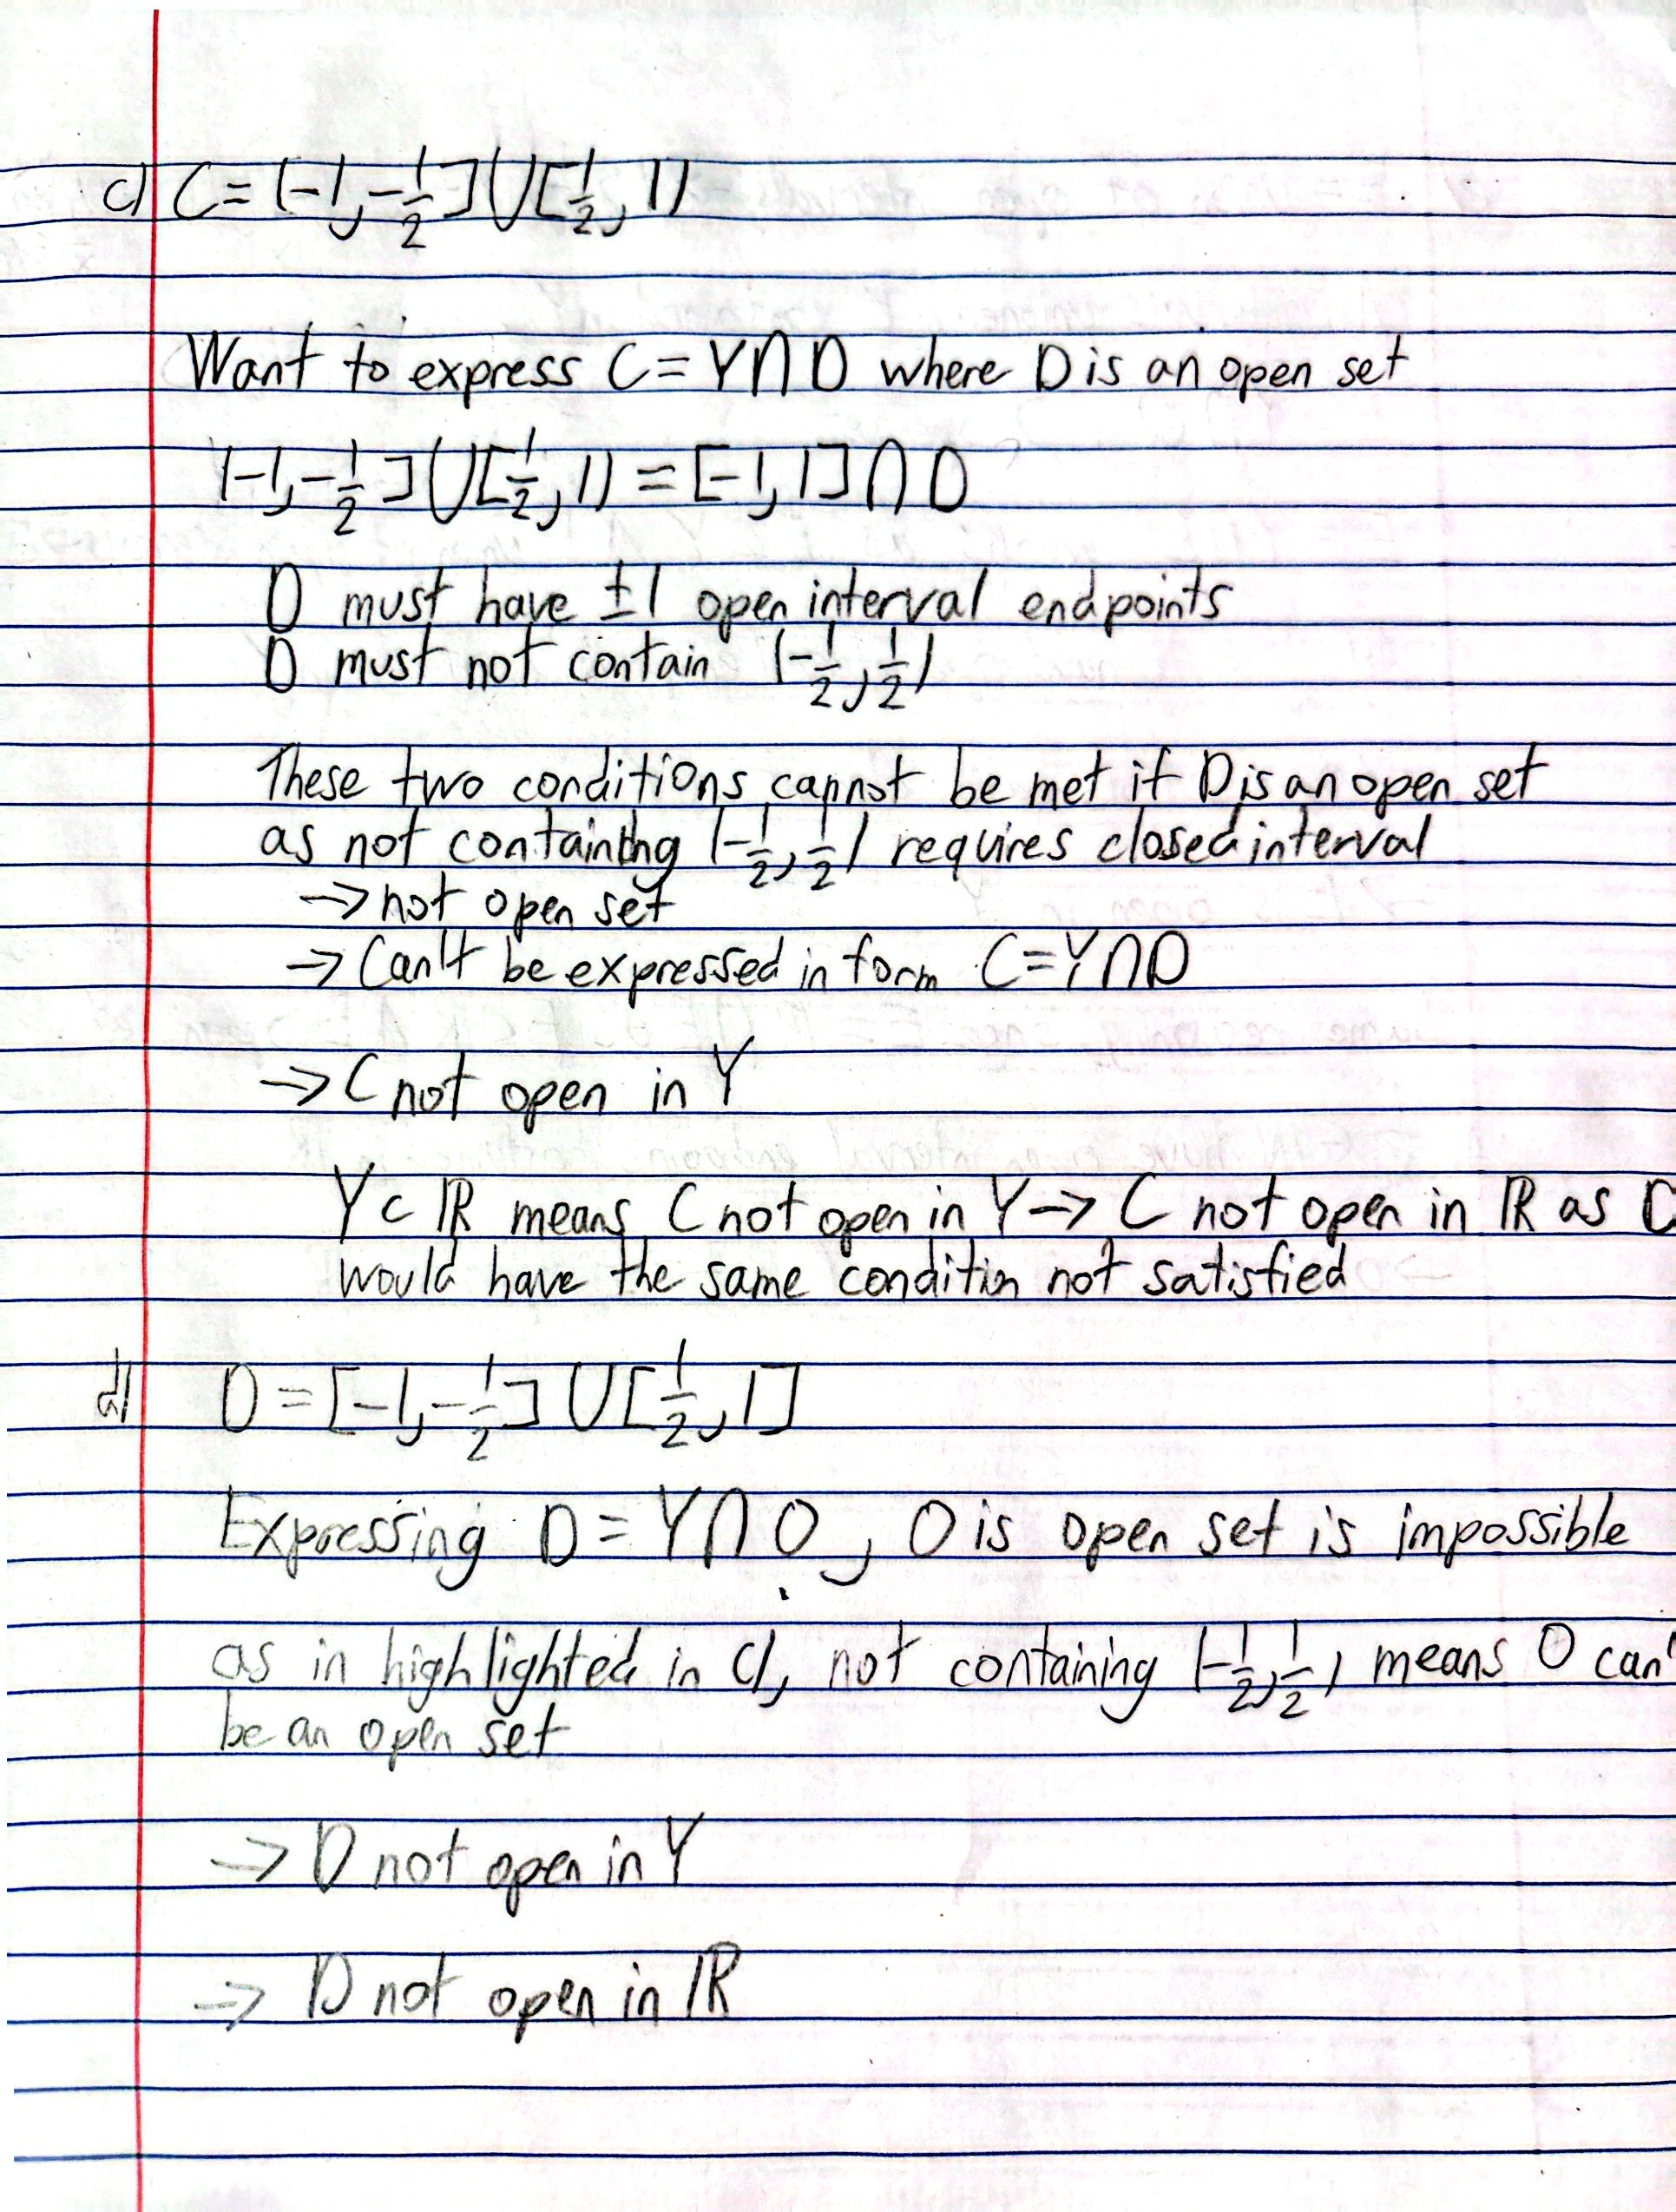 c) C = (-1, -1/2] ∪ [1/2, 1)
Want to express C = Y ∩ O where O is an open set
(-1, -1/2] ∪ [1/2, 1) = [-1, 1] ∩ O
O must have ±1 open interval endpoints
O must not contain (-1/2, 1/2)
These two conditions cannot be met if O is an open set
as not containing (-1/2, 1/2) requires closed interval
→ not open set
→ Can't be expressed in form C = Y ∩ O
→ C not open in Y
Y ⊂ ℝ means C not open in Y → C not open in ℝ as C
would have the same condition not satisfied
d) D = [-1, -1/2] ∪ [1/2, 1]
Expressing D = Y ∩ O, O is open set is impossible
as in highlighted in c), not containing (-1/2, 1/2) means O can'
be an open set
→ D not open in Y
→ D not open in ℝ